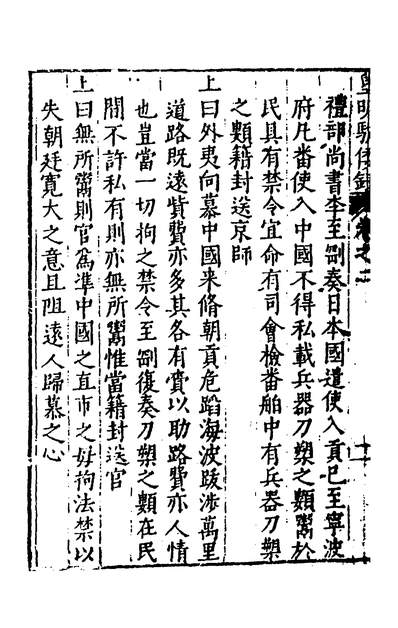 皇明馭倭錄 卷之二
禮部尚書李至剛奏日本國遣使入貢已至寧波
府凡番使入中國不得私載兵器刀槊之類鬻於
民具有禁令宜命有司會檢番舶中有兵器刀槊
之類籍封送京師
上曰外夷向慕中國來脩朝貢危蹈海波跋涉萬里
道路旣遠貲費亦多其各有賫以助路費亦人情
也豈當一切拘之禁令至剛復奏刀槊之類在民
間不許私有則亦無所鬻惟當籍封送官
上曰無所鬻則官爲準中國之直市之毋拘法禁以
失朝廷寬大之意且阻遠人歸慕之心